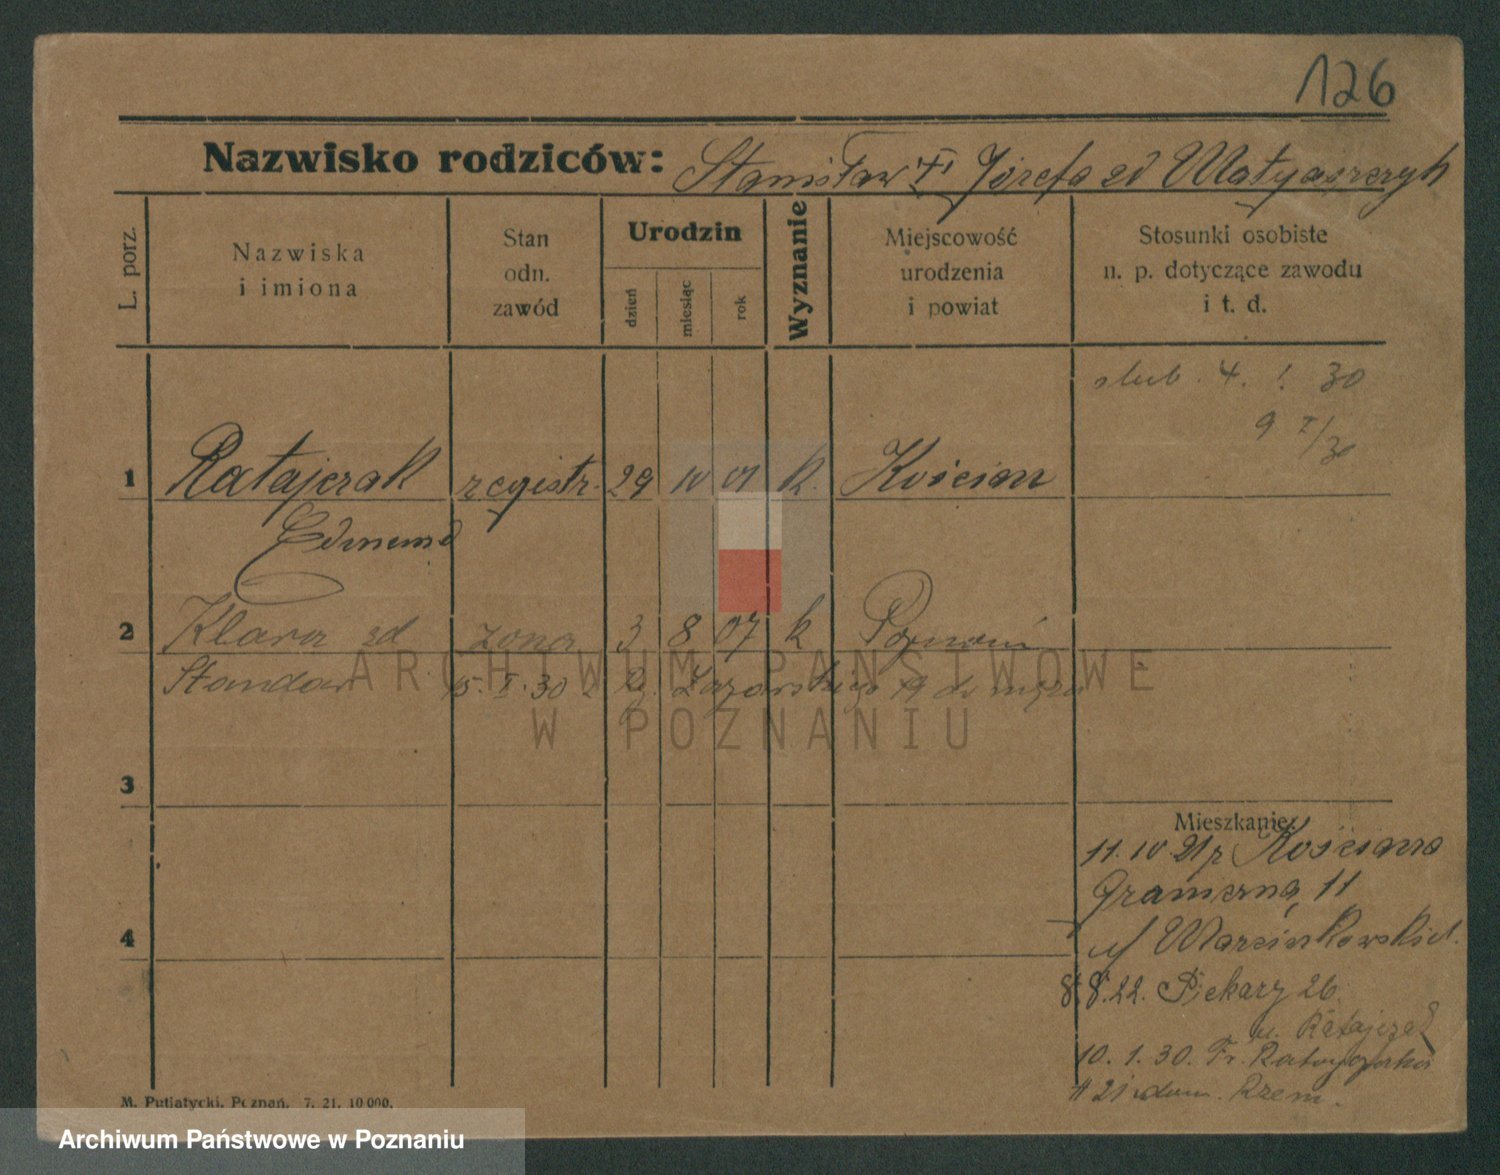 126
Nazwisko rodziców: Stanisław + i Józefa zd Matyaszczyk
L. porz.
Nazwiska
i imiona
Stan
odn.
zawód
Urodzin
dzień
miesiąc
rok
Wyznanie
Miejscowość
urodzenia
i powiat
Stosunki osobiste
n. p. dotyczące zawodu
i t. d.
slub. 4. 1. 30
9 I/30
1 Ratajczak registr. 29 10 01 k. Kościan
Edmund
2 Klara zd żona 3 8 07 k Poznań
Standar 15. I. 30 19 do męża
3
4
Mieszkanie:
11. 10. 21 z Kościana
Graniczna 11
u/ Marcinkowskich.
8.8.22. Piekary 26
u. Ratajczak
10. 1. 30. Fr. Ratajczaka
21
M. Putiatycki, Poznań. 7. 21. 10 000.
ARCHIWUM PAŃSTWOWE
W POZNANIU
Archiwum Państwowe w Poznaniu